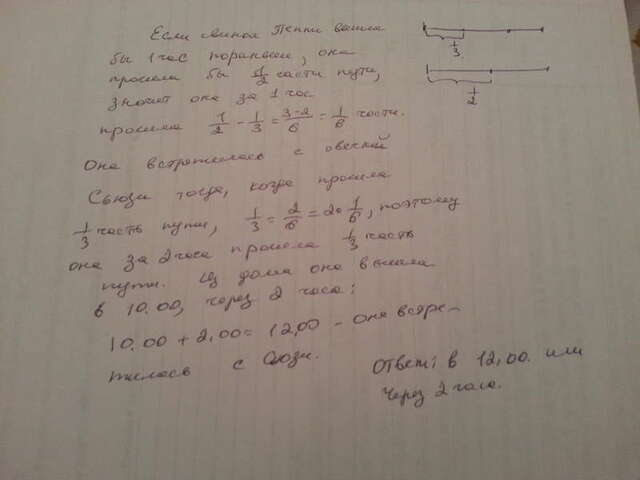 Если свинка Пеппи вышла
бы 1 час пораньше, она
прошла бы 1/2 части пути,
значит она за 1 час
прошла 1/2 - 1/3 = 3-2/6 = 1/6 части.
Она встретилась с овечкой
Сьюзи тогда, когда прошла
1/3 часть пути, 1/3 = 2/6 = 2 • 1/6, поэтому
она за 2 часа прошла 1/3 часть
пути. Из дома она вышла
в 10.00, через 2 часа:
10.00 + 2,00 = 12,00 - она встре-
тилась с Сьюзи.
Ответ: в 12,00. или
через 2 часа.
1/3.
1/2